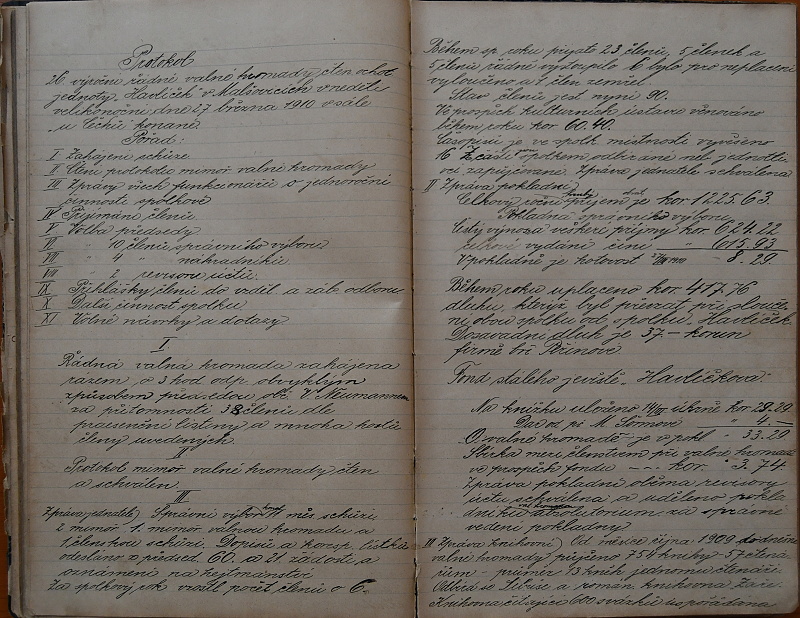 Protokol
26. výroční řádné valné hromady čten. ochot.
jednoty "Havlíček" v Malšovicích v neděli
velikonoční dne 27 března 1910 v sále
u Čechů konané.
Pořad:
I Zahájení schůze.
II Čtení protokolu mimoř. valné hromady
III Zprávy všech funkcionářů o jednoroční
činnosti spolkové
IV Přijímání členů.
V Volba předsedy
VI " 10 členů správního výboru
VII " 4 " náhradníků
VIII " 2 revisorů účtů.
IX Přihlášky členů do vzděl. a záb. odboru
X Další činnost spolku.
XI Volné návrhy a dotazy.
I
Řádná valná hromada zahájena
rázem o 3 hod odp. obvyklým
způsobem předsedou obč. V. Neumannem
za přítomnosti 38 členů dle
praesenční listiny a mnoha hostů
členy uvedených.
II
Protokol mimoř. valné hromady čten
a schválen.
III
Zpráva jednatele) Správní výbor měl měs. schůzi
2 mimoř. 1. mimoř. valnou hromadu a
1 členskou schůzi. Dopisů a koresp. lístků
odesláno z předsed. 60. a 31. žádostí a
oznámení na hejtmanství
Za spolkový rok vrostl počet členů o 6.
Během sp. roku přijato 23 členů, 5 členek a
5 členů řádně vystoupilo 16 bylo pro neplacení
vyloučeno a 1 člen zemřel.
Stav členů jest nyní 90.
Ve prospěch kulturních ústavů věnováno
během roku kor 60.40.
Časopisů je ve spolk. místnosti vyvěšeno
16 z části spolkem odbírané neb jednotli-
vci zapůjčované. Zpráva jednatele schválena
II Zpráva pokladní)
Celkový roční hrubý příjem je kor 1225.63.
Vkladna správního výboru
Čistý výnos a veškeré příjmy kor. 624.22
celkové vydání činí " 615.93
V pokladně je hotovost " 8.29
Během roku uplaceno kor. 417.76
dluhu, kterýž byl převzat při slouče-
ní obou spolků od spolku "Havlíček"
Dosavadní dluh je 37.- korun
firmě
Fond stálého jeviště "Havlíčkova"
Na knížku uloženo kor 29.29
Dar od p. M. " 4.-
O valné hromadě je v pokl " 33.29
Sbírka mezi členstvem při valné hromadě
ve prospěch fondu --- kor. 3.74
Zpráva pokladní oběma revisory
účtů schválena a uděleno pokla-
dníku absolutorium za správné
vedení pokladny
III Zpráva knihovní) Od měsíce října 1909 do dnešní
valné hromady půjčeno 754 knihy 57 čtená-
řům - průměr 13 knih jednomu čtenáři.
Odbírá se Libuše a román. knihovna Záře.
Knihovna čítající 600 svazků uspořádána